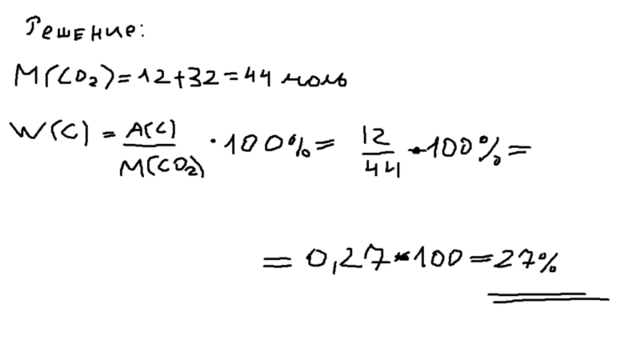 Решение:
M(CO₂) = 12 + 32 = 44 моль
W(C) = A(C) / M(CO₂) · 100% = 12 / 44 · 100% =
= 0,27 * 100 = 27%